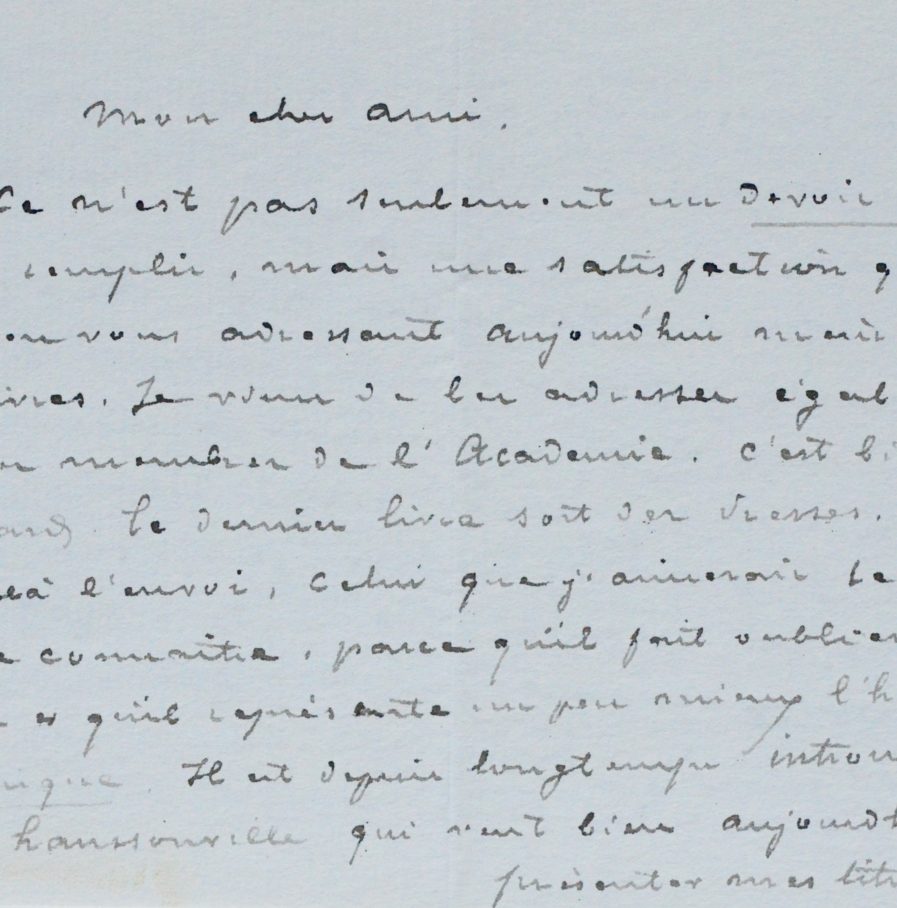 Mon cher ami,
Ce n'est pas seulement un devoir
remplir, mais une satisfaction q
en vous adressant aujourd'hui mes
ivres. Je viens de les adresser égal
membres de l'Académie. C'est bi
Le dernier livre sort des presses.
l'envoi, celui que j'aimerais le
connaître, parce qu'il fait oublier
et qu'il représente un peu mieux l'h
ique. Il est depuis longtemps introu
haussonville qui veut bien aujourd'h
présenter mes titr